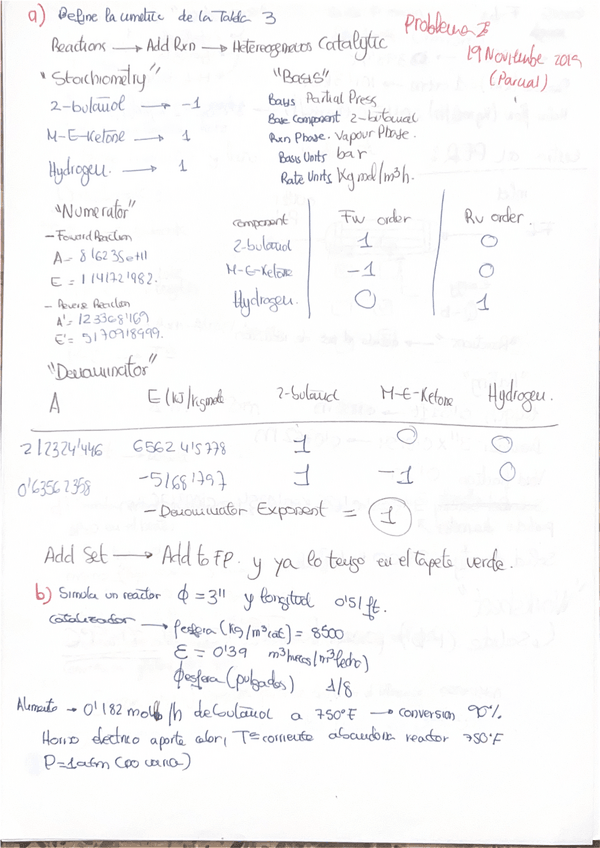 a) Define la cinética de la Tabla 3
Problema 3
19 Noviembre 2019
(Parcial)
Reactions → Add Rxn → Heterogeneous Catalytic
"Stoichiometry"
2-butanol → -1
M-E-Ketone → 1
Hydrogen. → 1
"Basis"
Basys Partial Press
Base Component 2-butanol
Rxn Phase. Vapour Phase.
Basis Units bar
Rate Units Kgmol/m³h.
"Numerator"
- Forward Reaction
A = 8'6235e+11
E = 1'41721'982.
- Reverse Reaction
A' = 123368'169
E' = 51709'18999.
component Fw order Rv order
2-butanol 1 0
M-E-Ketone -1 0
Hydrogen. 0 1
"Denominator"
A E (KJ/Kgmole) 2-butanol M-E-Ketone Hydrogen.
212324'446 6562415778 1 0 0
0'63562358 -5168'797 1 -1 0
- Denominator Exponent = 1
Add Set → Add to FP. y ya lo tengo en el tapete verde.
b) Simula un reactor ϕ = 3" y longitud 0'51 ft.
catalizador → ρesfera (Kg/m³cat) = 8500
ε = 0'39 m³huecos/m³lecho)
ϕesfera (pulgadas) 1/8
Alimento → 0'182 mollb/h de butanol a 750°F → conversion 90%
Horno electrico aporte calor, Tª corriente abandona reactor 750°F
P = 1 atm (no varia)